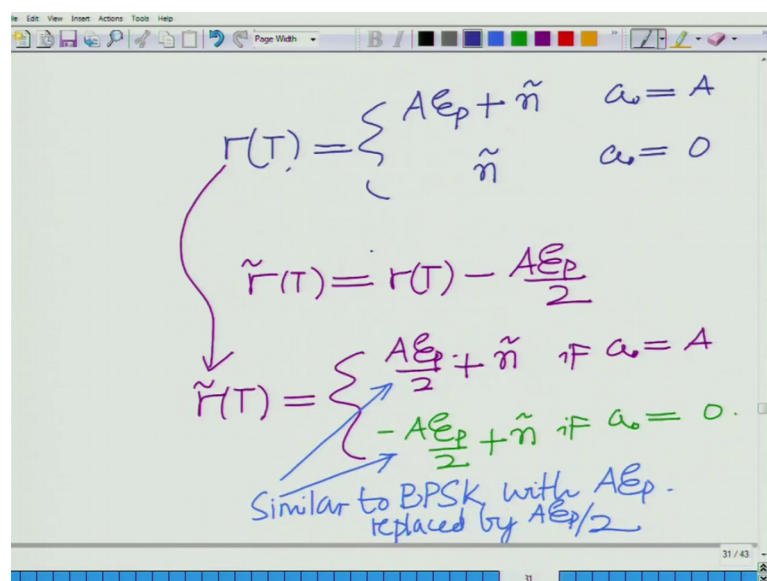 le Edit View Insert Actions Tools Help
Page Width B I
r(T) = { AEp + ñ a₀ = A
ñ a₀ = 0
r̃(T) = r(T) − AEp/2
r̃(T) = { AEp/2 + ñ if a₀ = A
−AEp/2 + ñ if a₀ = 0.
Similar to BPSK with AEp.
replaced by AEp/2
31 / 43
31